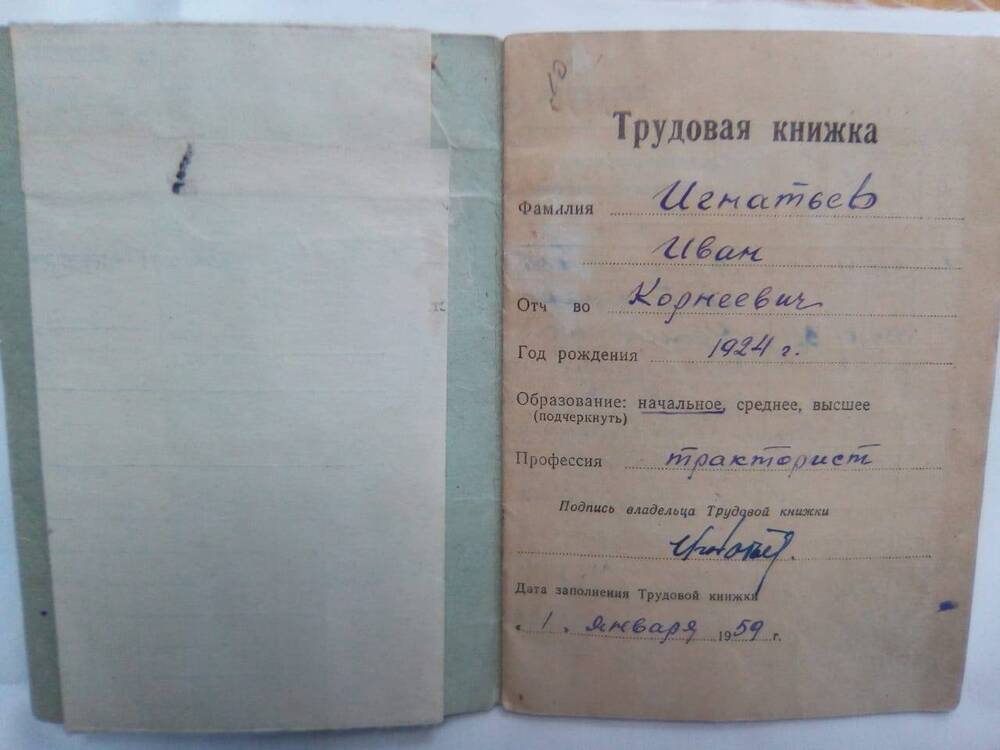 Трудовая книжка
Фамилия Игнатьев
Иван
Отч во Корнеевич
Год рождения 1924 г.
Образование: начальное, среднее, высшее
(подчеркнуть)
Профессия тракторист
Подпись владельца Трудовой книжки
Игнатьев.
Дата заполнения Трудовой книжки
„ 1 „ января 1959 г.